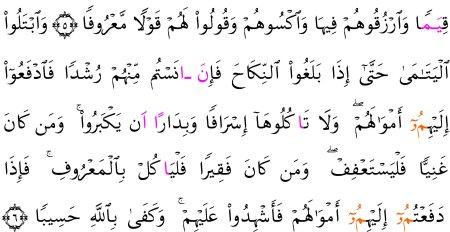 قِيَمًا وَٱرْزُقُوهُمْ فِيهَا وَٱكْسُوهُمْ وَقُولُوا۟ لَهُمْ قَوْلًا مَّعْرُوفًا ﴿٥﴾ وَٱبْتَلُوا۟
ٱلْيَتَـٰمَىٰ حَتَّىٰٓ إِذَا بَلَغُوا۟ ٱلنِّكَاحَ فَإِنَ ـانَسْتُم مِّنْهُمْ رُشْدًا فَٱدْفَعُوٓا۟
إِلَيْهِمُۥٓ أَمْوَٰلَهُمْ ۖ وَلَا تَاكُلُوهَآ إِسْرَافًا وَبِدَارًا اَن يَكْبَرُوا۟ ۚ وَمَن كَانَ
غَنِيًّا فَلْيَسْتَعْفِفْ ۖ وَمَن كَانَ فَقِيرًا فَلْيَاكُلْ بِٱلْمَعْرُوفِ ۚ فَإِذَا
دَفَعْتُمُۥٓ إِلَيْهِمُۥٓ أَمْوَٰلَهُمْ فَأَشْهِدُوا۟ عَلَيْهِمْ ۚ وَكَفَىٰ بِٱللَّهِ حَسِيبًا ﴿٦﴾